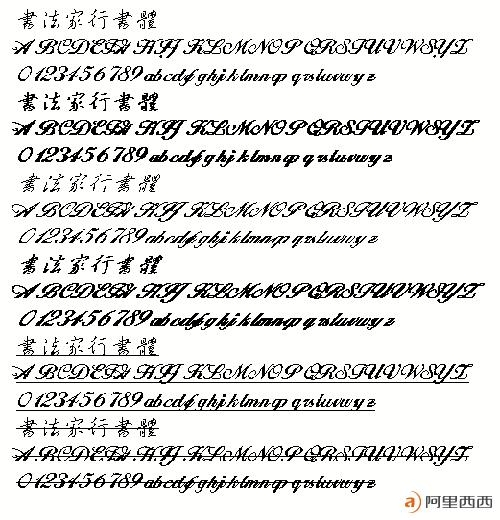 書法家行書體
ABCDEFGHIJKLMNOPQRSTUVWXYZ
0123456789 abcdefghijklmnop qrstuvwyz
書法家行書體
ABCDEFGHIJKLMNOPQRSTUVWXYZ
0123456789 abcdefghijklmnop qrstuvwyz
書法家行書體
ABCDEFGHIJKLMNOPQRSTUVWXYZ
0123456789 abcdefghijklmnop qrstuvwyz
書法家行書體
ABCDEFGHIJKLMNOPQRSTUVWXYZ
0123456789 abcdefghijklmnop qrstuvwyz
書法家行書體
ABCDEFGHIJKLMNOPQRSTUVWXYZ
0123456789 abcdefghijklmnop qrstuvwyz
書法家行書體
ABCDEFGHIJKLMNOPQRSTUVWXYZ
0123456789 abcdefghijklmnop qrstuvwyz
a 阿里西西